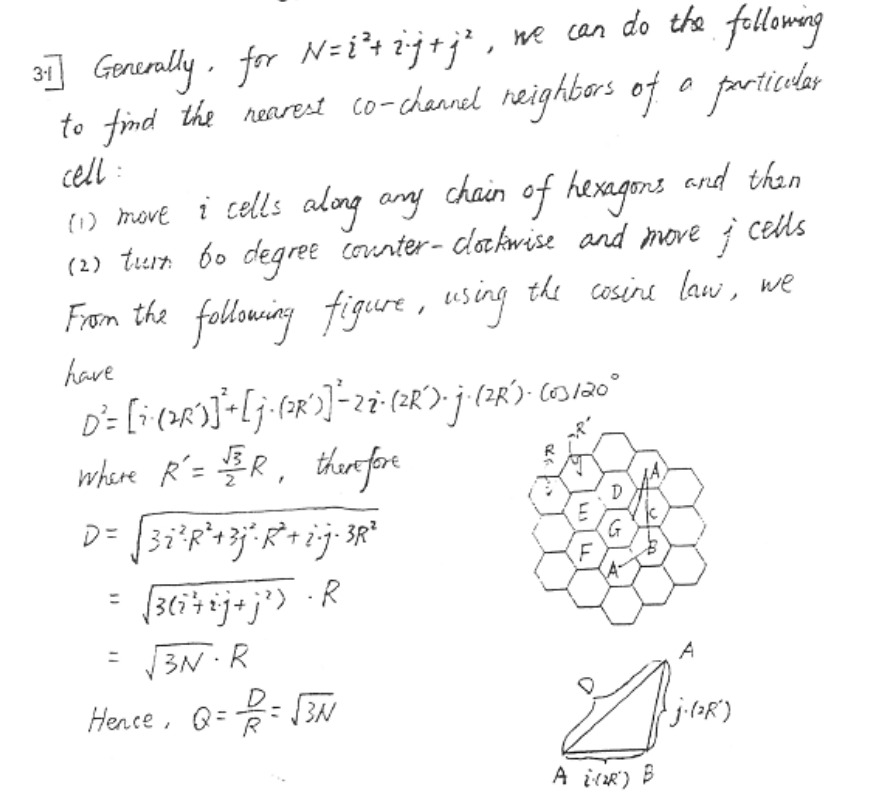 3.1] Generally, for N=i²+i·j+j², we can do the following
to find the nearest co-channel neighbors of a particular
cell:
(1) move i cells along any chain of hexagons and then
(2) turn 60 degree counter-clockwise and move j cells
From the following figure, using the cosine law, we
have
D²=[i·(2R′)]²+[j·(2R′)]²-2i·(2R′)·j·(2R′)·Cos120°
where R′=√3/2 R, therefore
D=√(3i²·R²+3j²·R²+i·j·3R²)
=√(3(i²+i·j+j²)) ·R
=√(3N)·R
Hence, Q=D/R=√(3N)
R R′
A
D
E C
G
F B
A
A
D
j·(2R′)
A i·(2R′) B